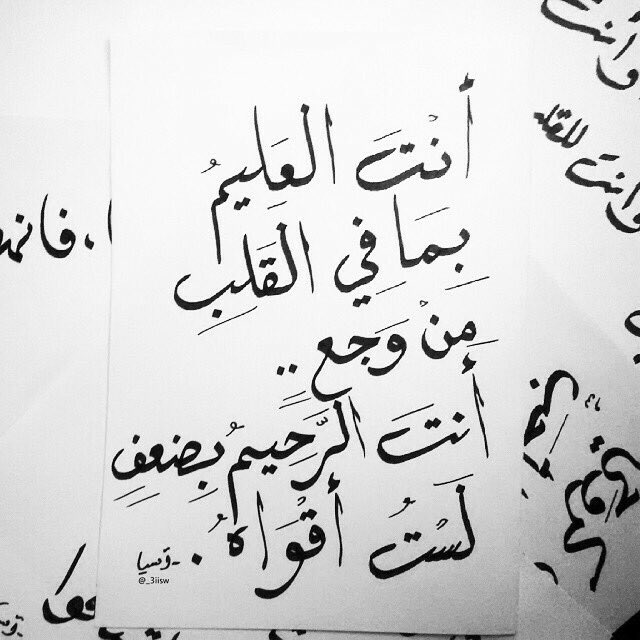 أَنْتَ العَلِيمُ
بِمَا فِي القَلبِ
مِنْ وَجعٍ ..
أَنتَ الرَّحِيمُ بِضعفٍ
لَسْتُ أقْوَاهُ .
آسيا
@_3iisw
وأنت
للقلب
وأنت